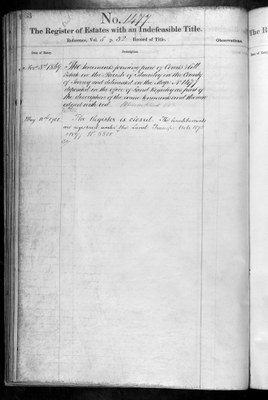 No. 1477.
The Register of Estates with an Indefeasible Title.
References, Vol. 5 p. 32 Record of Title.
Date of Entry. Description. Observations.
The hereditaments forming part of Combe Hill
Estate in the Parish of in the County
of Surrey and delineated on the Map No 1477
deposited in the office of Land Registry as part of
the description of the same hereditaments and thereon
edged with red.
May The Register is closed. The hereditaments
are registered under the Land Transfer Acts 1875